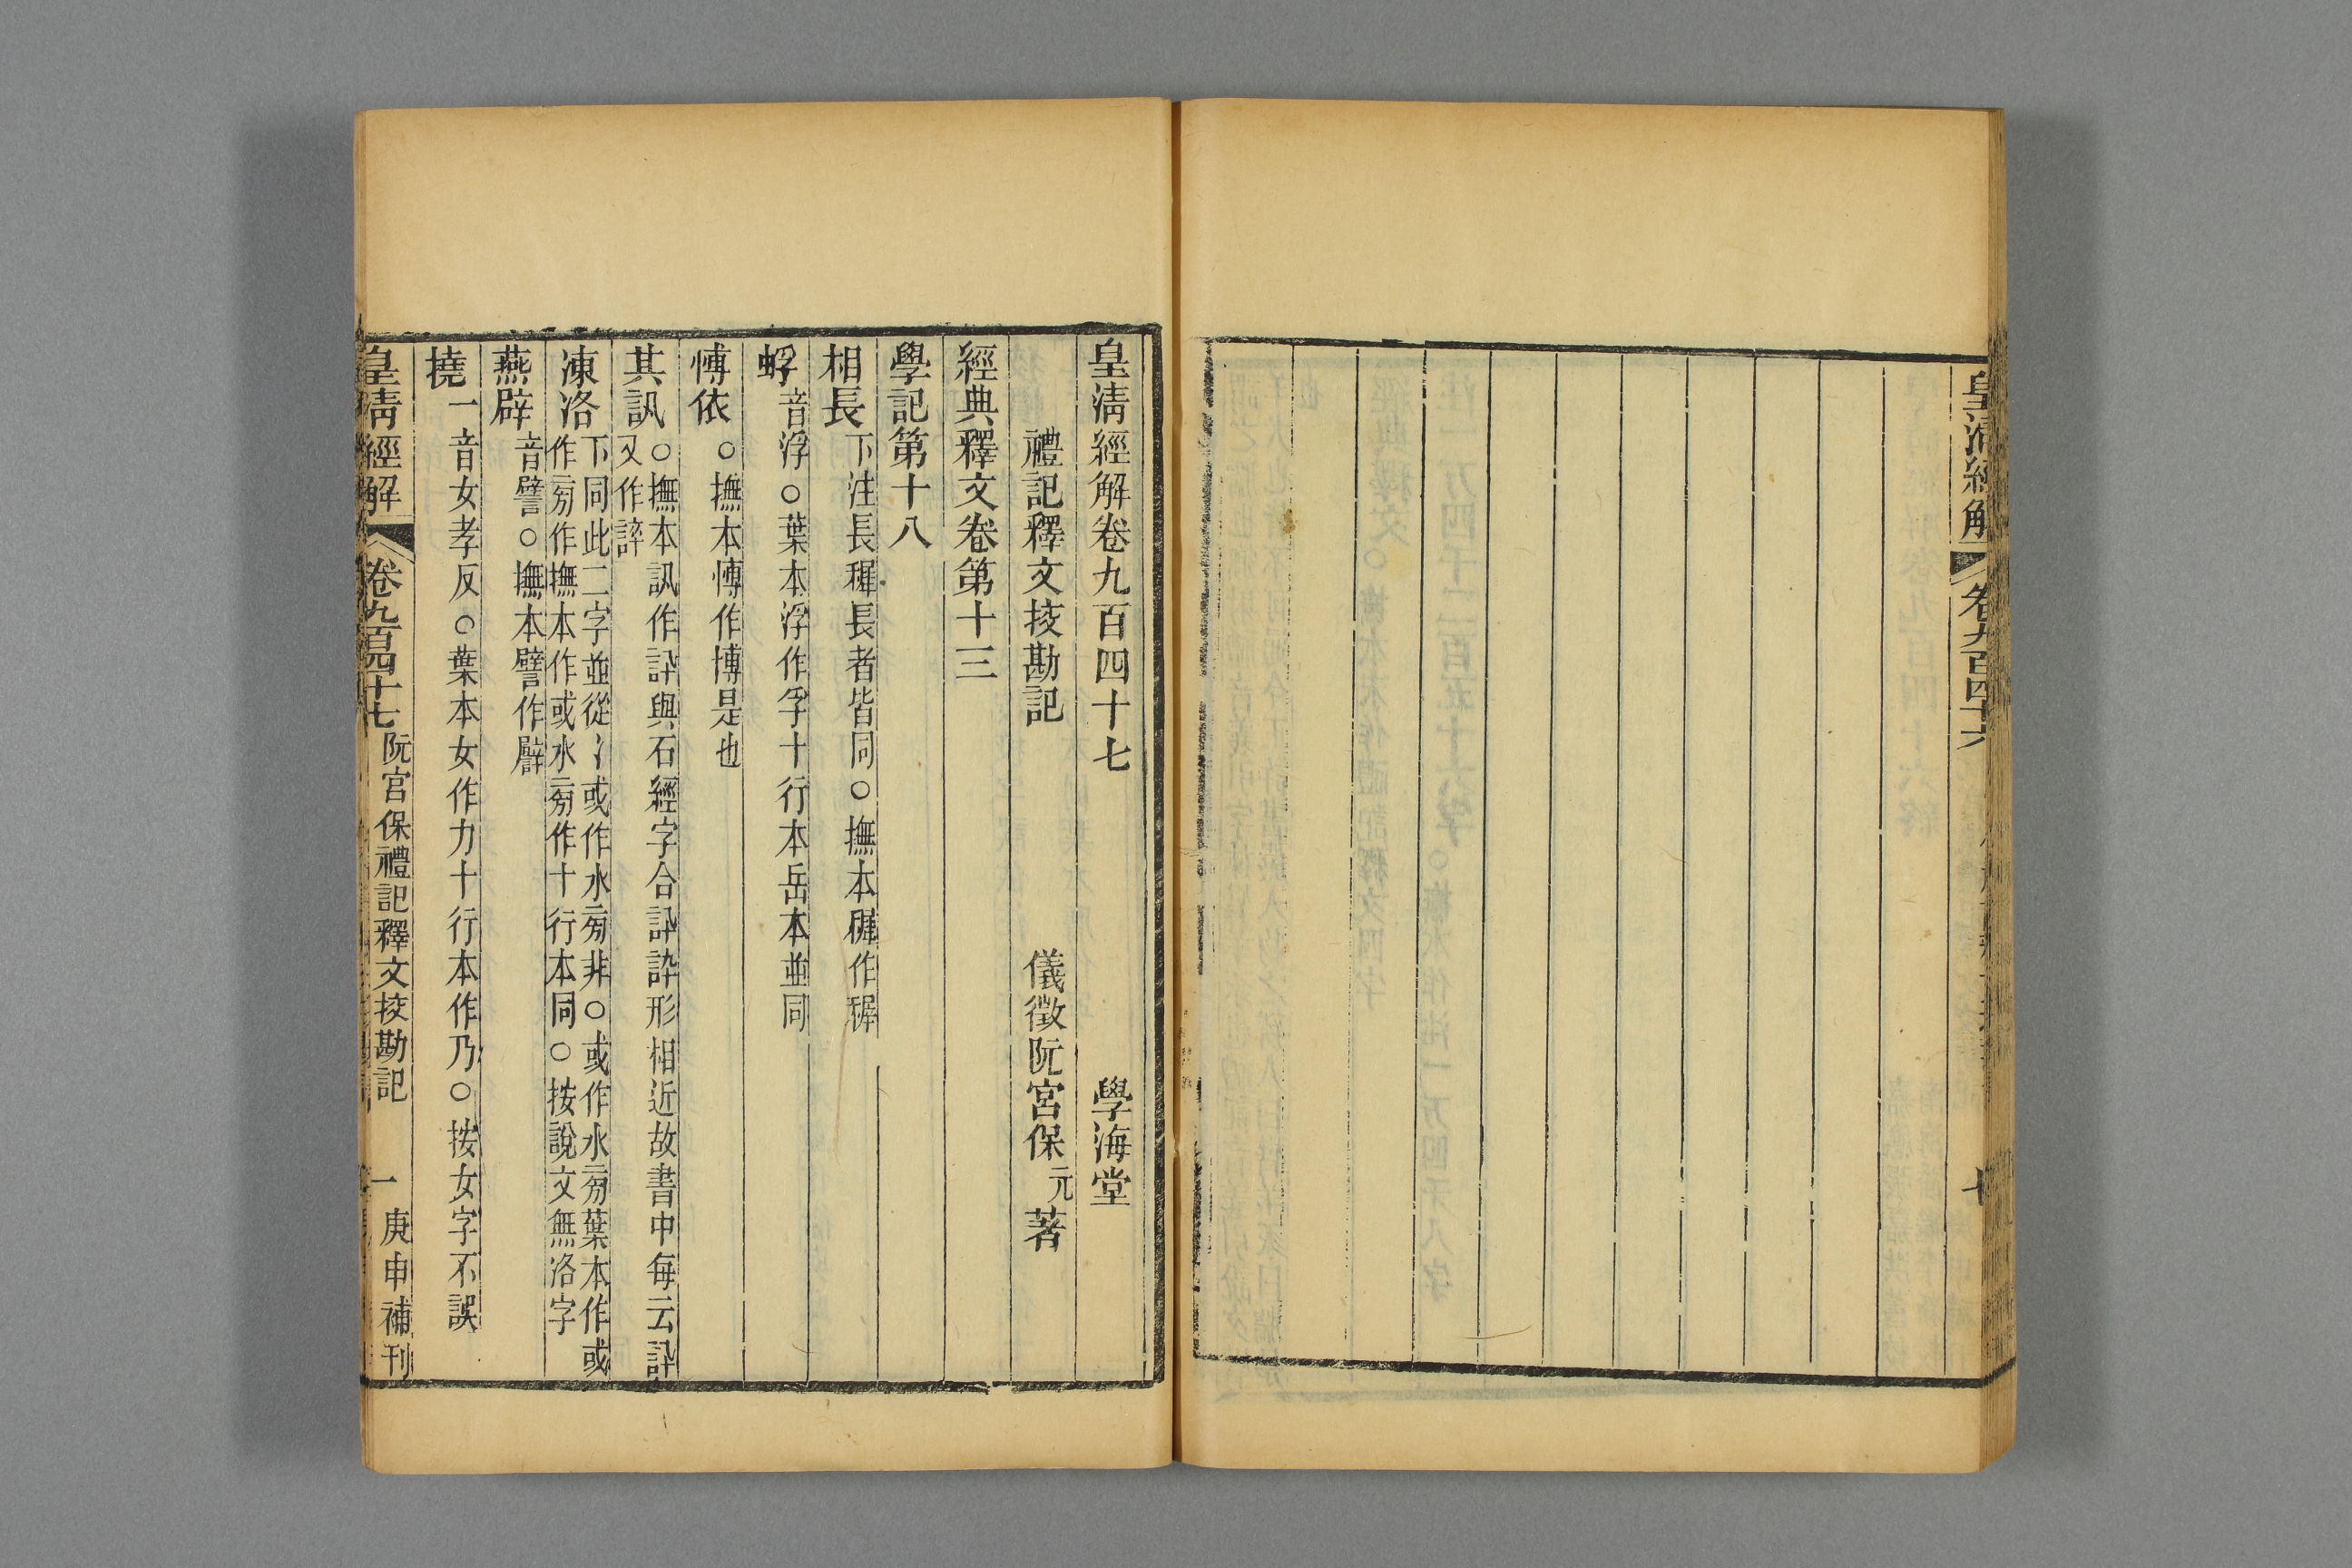 皇清經解
卷九百四十六
七
皇清經解卷九百四十七
學海堂
禮記釋文挍勘記
儀徵阮宮保元著
經典釋文卷第十三
學記第十八
相長下注長穉長者皆同○撫本穉作稺
蜉音浮○葉本浮作孚十行本岳本並同
愽依○撫本愽作博是也
其訊○撫本訊作訙與石經字合訙誶形相近故書中每云訙
又作誶
凍洛下同此二字並從冫或作水㫄非○或作水㫄葉本作或
作㫄作撫本作或水㫄作十行本同○按說文無洛字
燕辟音譬○撫本譬作劈
撓一音女孝反○葉本女作力十行本作乃○按女字不誤
皇清經解
卷九百四十七
阮宮保禮記釋文挍勘記
一
庚申補刊